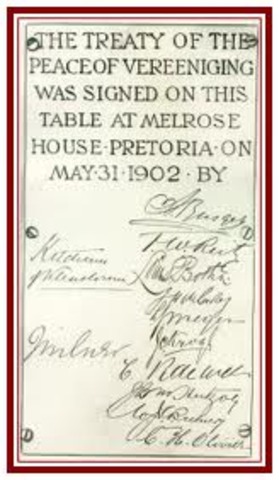 THE TREATY OF THE
PEACE OF VEREENIGING
WAS SIGNED ON THIS
TABLE AT MELROSE
HOUSE·PRETORIA·ON
MAY·31·1902·BY
Burger
F. W. Reitz
Kitchener
of Khartoum
Louis Botha
Milner
J B M Hertzog
C. H. Olivier